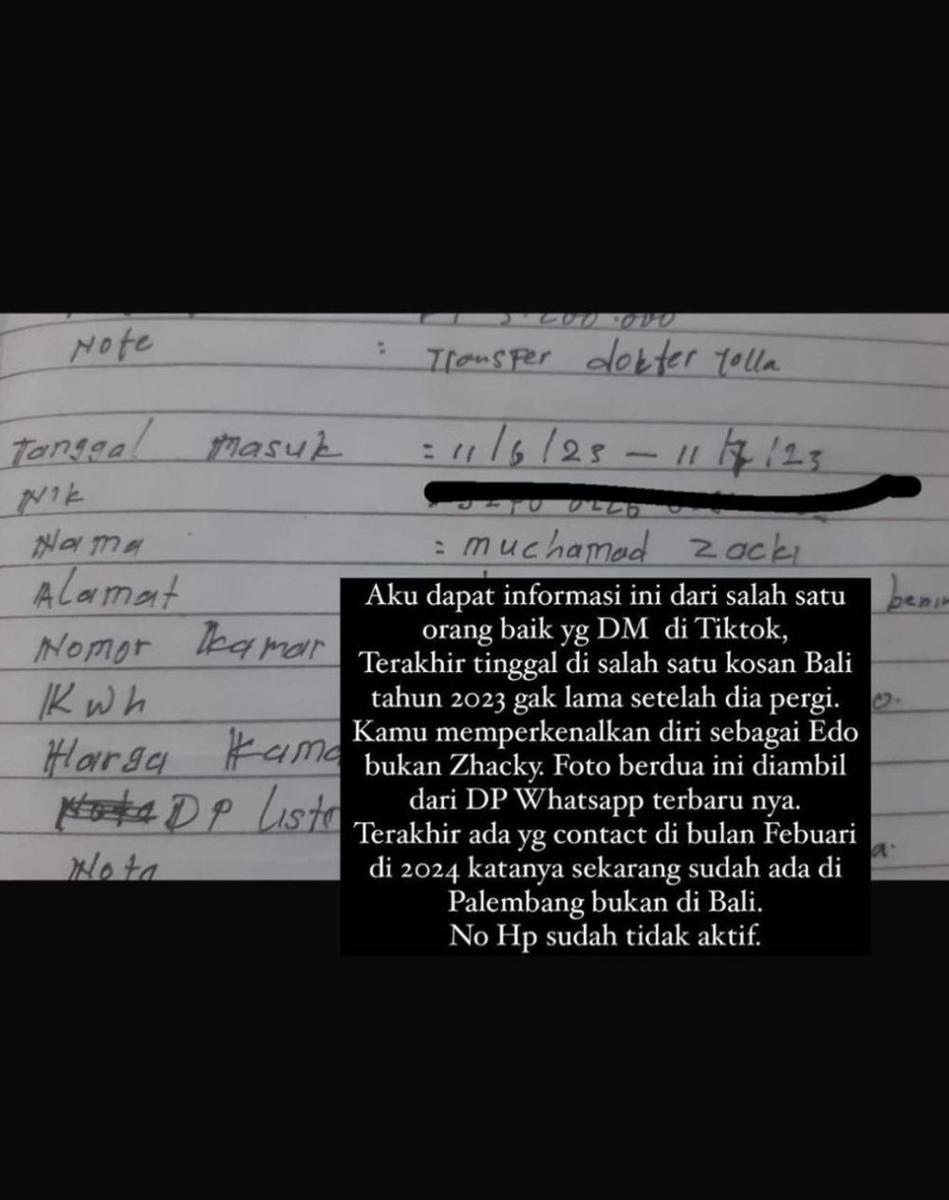 Note : Transfer dokter Yolla
Tanggal Masuk = 11/6/23 - 11/7/23
Nik
Nama = muchamad zacki
Alamat
Nomor kamar
Kwh
Harga
DP
Nota
Aku dapat informasi ini dari salah satu
orang baik yg DM di Tiktok,
Terakhir tinggal di salah satu kosan Bali
tahun 2023 gak lama setelah dia pergi.
Kamu memperkenalkan diri sebagai Edo
bukan Zhacky. Foto berdua ini diambil
dari DP Whatsapp terbaru nya.
Terakhir ada yg contact di bulan Febuari
di 2024 katanya sekarang sudah ada di
Palembang bukan di Bali.
No Hp sudah tidak aktif.